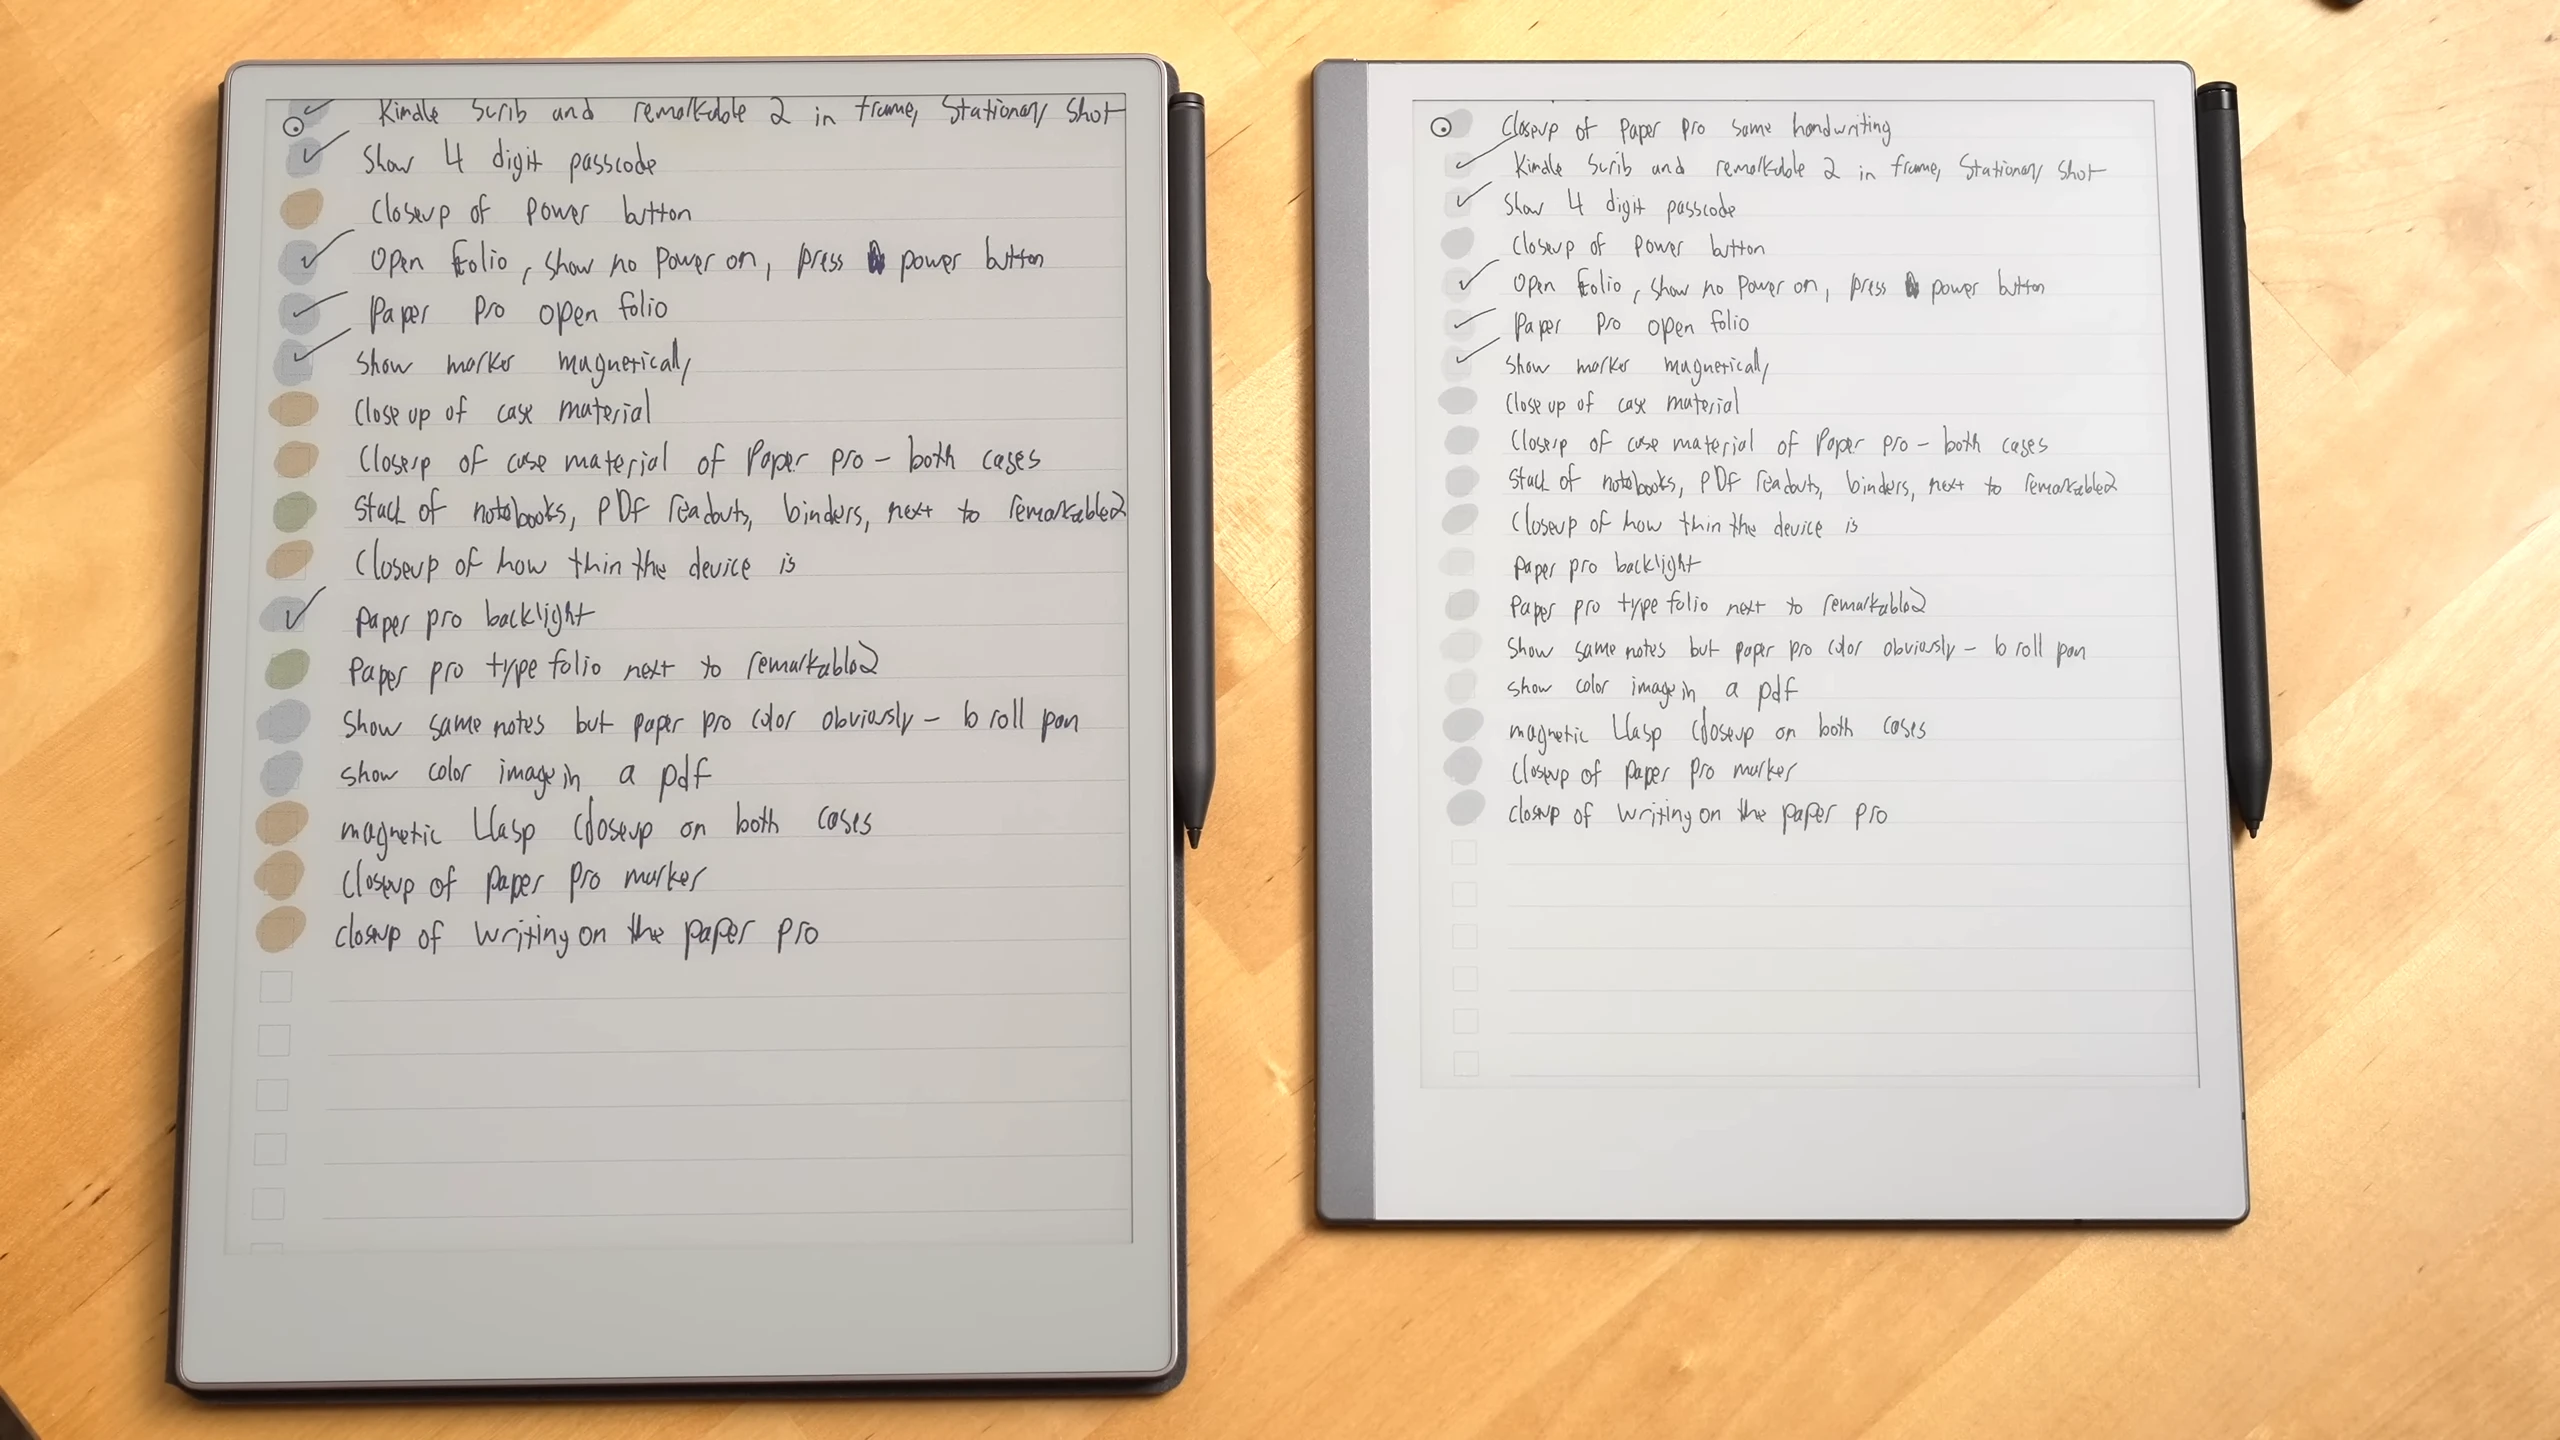 Kindle Scrib and remarkable 2 in frame, Stationary Shot
Show 4 digit passcode
Closeup of power button
Open folio, show no power on, press power button
Paper Pro open folio
Show marker magnetically
Close up of case material
Closeup of case material of Paper pro - both cases
Stack of notebooks, PDF readouts, binders, next to remarkable2
Closeup of how thin the device is
Paper pro backlight
Paper pro type folio next to remarkable2
Show same notes but paper pro color obviously - b roll pan
show color image in a pdf
magnetic Clasp closeup on both cases
Closeup of paper pro marker
closeup of writing on the paper pro
Closeup of Paper Pro same handwriting
Kindle Scrib and remarkable 2 in frame, Stationary Shot
Show 4 digit passcode
Closeup of power button
Open folio, show no power on, press power button
Paper Pro open folio
Show marker magnetically
Close up of case material
Closeup of case material of Paper pro - both cases
Stack of notebooks, PDF readouts, binders, next to remarkable2
Closeup of how thin the device is
Paper pro backlight
Paper pro type folio next to remarkable2
Show same notes but paper pro color obviously - b roll pan
show color image in a pdf
magnetic Clasp closeup on both cases
Closeup of paper pro marker
closeup of writing on the paper pro